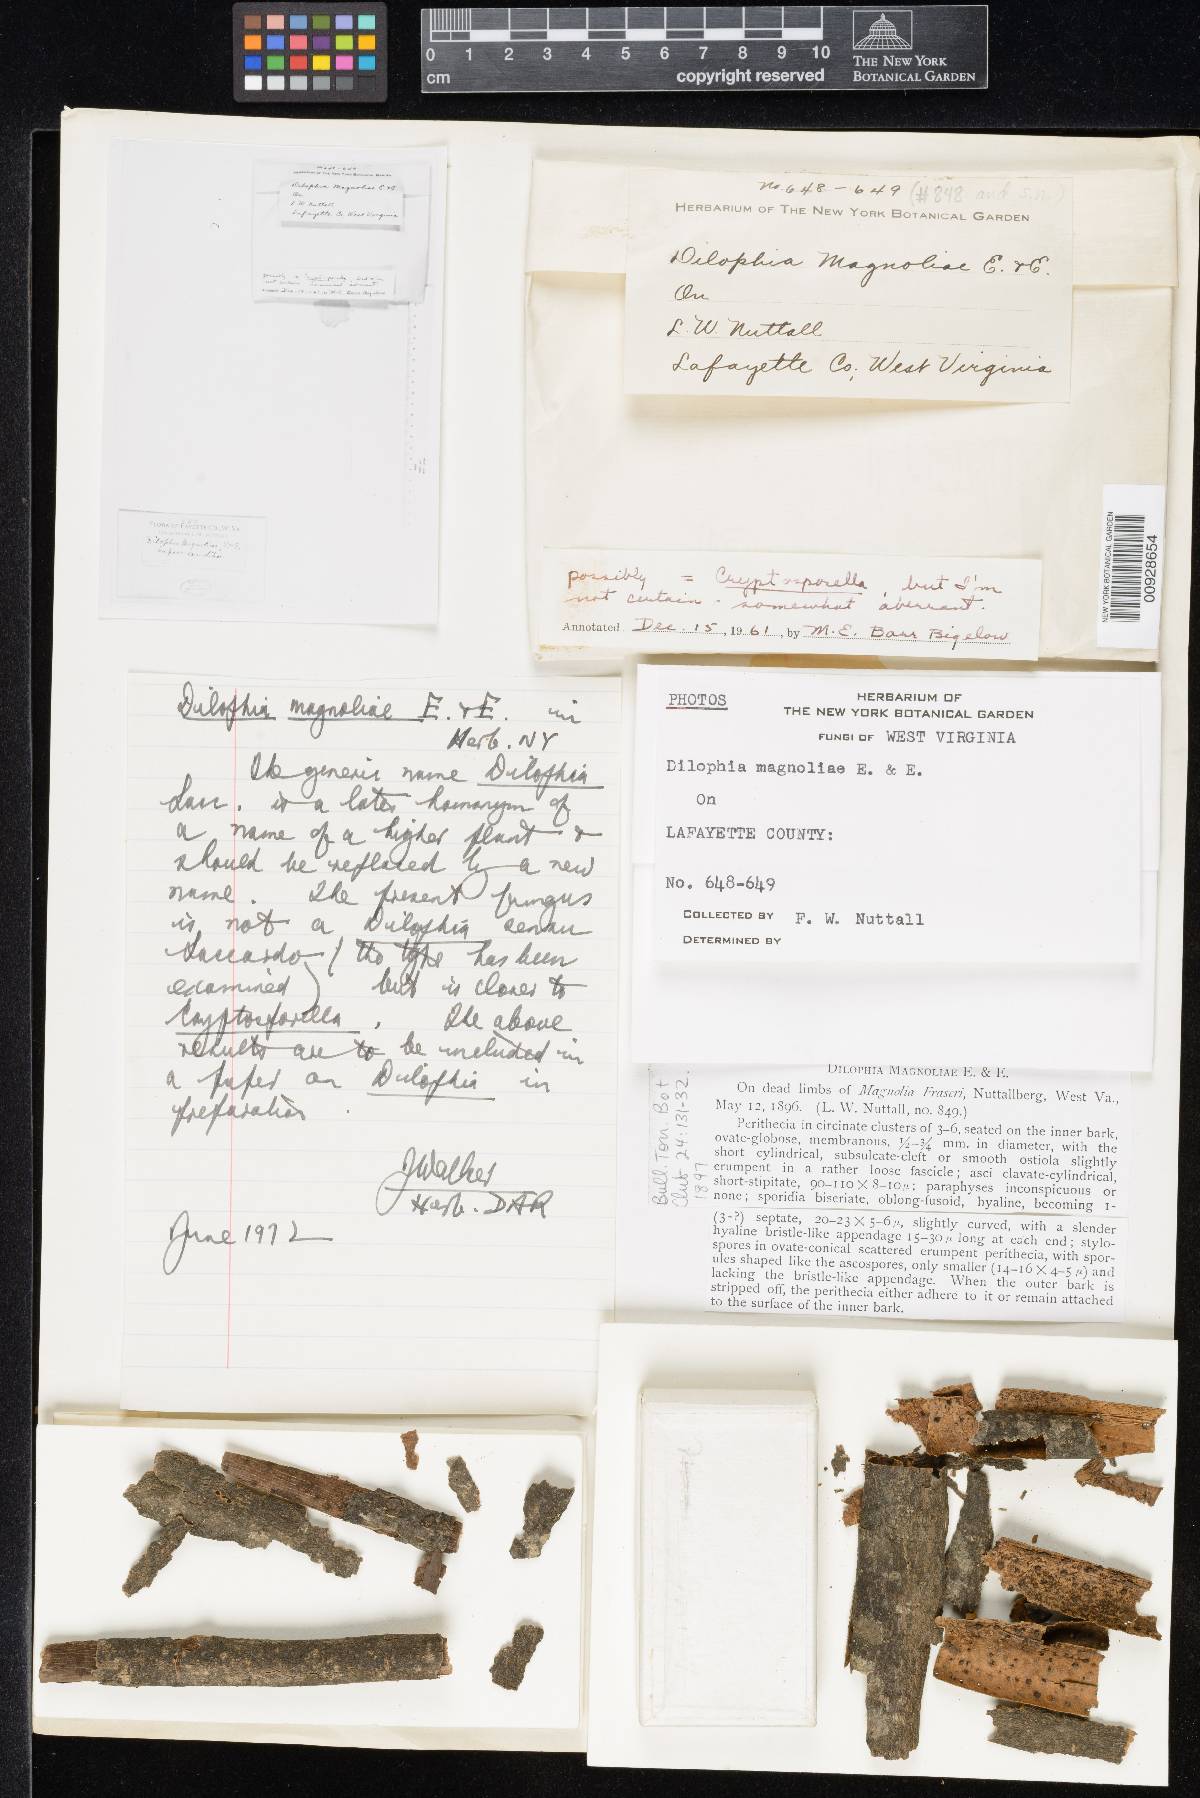 0 1 2 3 4 5 6 7 8 9 10
cm
copyright reserved
THE NEW YORK
BOTANICAL GARDEN
Dilophia Magnoliae E. & E.
On
L. W. Nuttall
Lafayette Co. West Virginia
No. 648-649 (#848 and s.n.)
HERBARIUM OF THE NEW YORK BOTANICAL GARDEN
Dilophia Magnoliae E. & E.
On
L. W. Nuttall
Lafayette Co; West Virginia
possibly = Cryptosporella, but I'm
not certain - somewhat aberrant.
Annotated Dec. 15, 1961, by M. E. Barr Bigelow
NEW YORK BOTANICAL GARDEN
00928654
Dilophia magnoliae E. & E. in
Herb. NY
The generic name Dilophia
Sacc. is a later homonym of
a name of a higher plant &
should be replaced by a new
name. The present fungus
is not a Dilophia sensu
Saccardo (the type has been
examined) but is closer to
Cryptosporella. The above
results are to be included in
a paper on Dilophia in
preparation.
J Walker
Herb. DAR
June 1972
PHOTOS
HERBARIUM OF
THE NEW YORK BOTANICAL GARDEN
FUNGI OF WEST VIRGINIA
Dilophia magnoliae E. & E.
On
LAFAYETTE COUNTY:
No. 648-649
COLLECTED BY F. W. Nuttall
DETERMINED BY
Bull. Torr. Bot
Club 24:131-32.
1897
DILOPHIA MAGNOLIAE E. & E.
On dead limbs of Magnolia Fraseri, Nuttallberg, West Va.,
May 12, 1896. (L. W. Nuttall, no. 849.)
Perithecia in circinate clusters of 3-6, seated on the inner bark,
ovate-globose, membranous, ½-¾ mm. in diameter, with the
short cylindrical, subsulcate-cleft or smooth ostiola slightly
erumpent in a rather loose fascicle; asci clavate-cylindrical,
short-stipitate, 90-110 × 8-10 µ; paraphyses inconspicuous or
none; sporidia biseriate, oblong-fusoid, hyaline, becoming 1-
(3-?) septate, 20-23 × 5-6 µ, slightly curved, with a slender
hyaline bristle-like appendage 15-30 µ long at each end; stylo-
spores in ovate-conical scattered erumpent perithecia, with spor-
ules shaped like the ascospores, only smaller (14-16 × 4-5 µ) and
lacking the bristle-like appendage. When the outer bark is
stripped off, the perithecia either adhere to it or remain attached
to the surface of the inner bark.